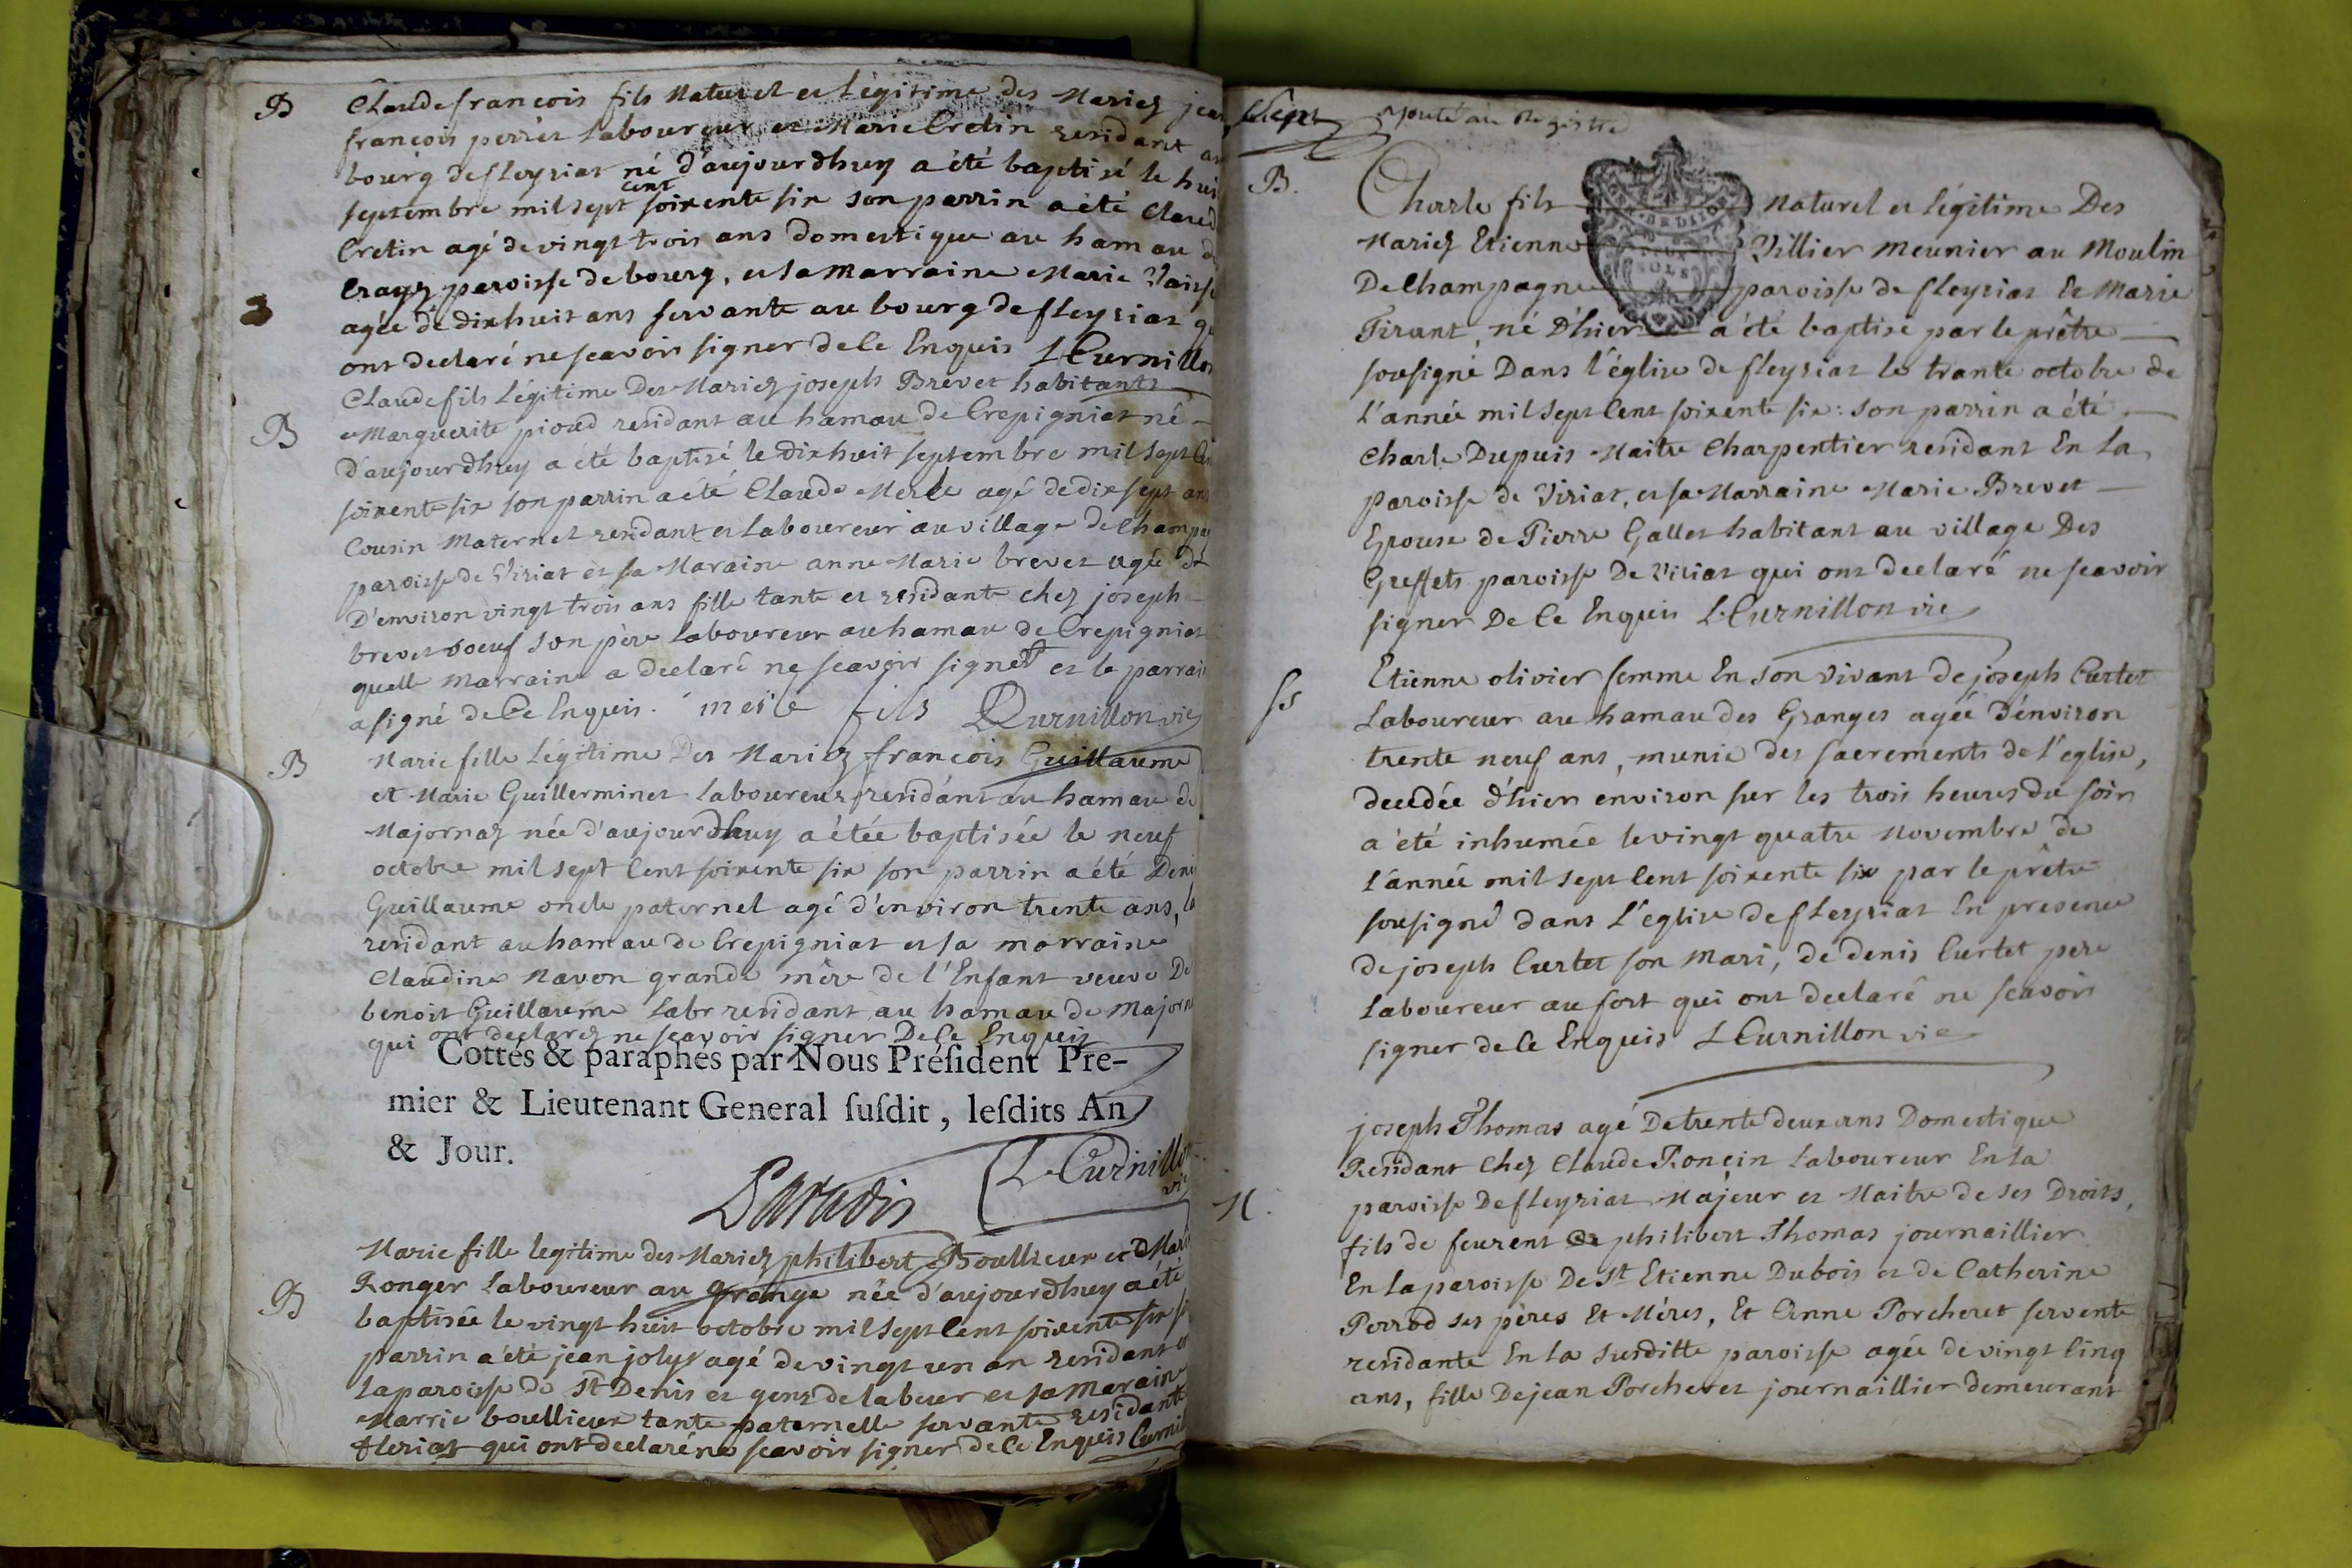 B Claude francois fils Naturel et Légitime des Mariez jean
francois perret Laboureur et Marie Cretin residant au
bourg de fleyriat né d'aujourdhuy a été baptisé le huit
septembre mil sept cent soixente six son parrin a été Claude
Cretin agé de vingt trois ans domestique au hamau de
Crayz paroisse de bourg, et la Marraine Marie Vaisse
agée de dixhuit ans servante au bourg de fleyriat qui
ont declaré ne scavoir signer de Ce Enquis L Curnillon
Claude fils Légitime Des Mariez joseph Brevet habitants
B et Marguerite pioud residant au hamau de Crepigniat né
d'aujourdhuy a été baptisé le dixhuit septembre mil sept Cent
soixente six son parrin a été Claude Merle agé de dix sept ans
Cousin Maternel residant et Laboureur au village de
paroisse de Viriat et sa Maraine anne Marie brevet agée
D'environ vingt trois ans fille tante et residante chez joseph
brevet son père Laboureur au hamau de Crepigniat
quelle Marraine a declaré ne scavoir signer et le parrain
a signé de Ce Enquis. merle fils Curnillon vic
B Marie fille Légitime Des Mariez francois Guillaume
et Marie Guillerminet Laboureur residant au hamau de
Majornaz née d'aujourdhuy a étée baptisée le neuf
octobre mil sept Cent soixente six son parrin a été Denis
Guillaume oncle paternel agé d'environ trente ans,
residant au hamau de Crepigniat et sa marraine
Claudine Navon grande mère de l'Enfant veuve De
benoit Guillaume Labr residant au hamau de Majornaz
qui ont declarez ne scavoir signer De Ce Enquis
Cottés & paraphés par Nous Préſident Pre-
mier & Lieutenant General ſuſdit, leſdits An
& Jour.
Paradis L Curnillon vic
Marie fille legitime des Mariez philibert Boullieur et Marie
Ronger Laboureur au Grange née d'aujourdhuy a été
B baptisée le vingt huit octobre mil sept Cent soixente six son
parrin a été jean joly agé de vingt un an residant en
la paroisse de St Denis et gens de labeur et sa Maraine
Marrie boullieur tante paternelle servante residante
fleriat qui ont declaré ne scavoir signer de Ce Enquis Curnillon
Sept ajouté au Registre
B. Charle fils Naturel et Légitime Des
Mariez Etienne Villier Meunier au Moulin
De Champagne paroisse de fleyriat Et Marie
Tirant, né D'hier a été baptisé par le prêtre
sousigné Dans l'église de fleyriat le trante octobre de
L'année mil sept Cent soixente six: son parrin a été
Charle Dupuis Maitre Charpentier residant En La
paroisse de Viriat, et sa Marraine Marie Brevet
Epouse de Pierre Gallet habitant au village Des
Greffets paroisse De Viriat qui ont declaré ne scavoir
signer De Ce Enquis L Curnillon vic
Etienne olivier femme En son vivant de joseph Curtet
Laboureur au hamau des Granges agée d'environ
trente neuf ans, munie des sacrements de l'eglise,
decedée d'hier environ sur les trois heures du soir
a été inhumée le vingt quatre Novembre de
L'année mil sept Cent soixente six par le prêtre
sousigné dans L'église de fleyriat En presence
de joseph Curtet son Mari, de denis Curtet pere
Laboureur au fort qui ont declaré ne scavoir
signer de Ce Enquis L Curnillon vic
joseph Thomas agé De trente deux ans Domestique
Residant Chez Claude Roncin Laboureur En La
M. paroisse De fleyriat Majeur et Maitre de ses Droits,
fils de feu philibert Thomas journaillier
En La paroisse De St Etienne Dubois et de Catherine
Perrod ses pères Et Mères, Et Anne Porcheret servente
residante En La susditte paroisse agée de vingt Cinq
ans, fille De jean Porcheret journaillier demeurant